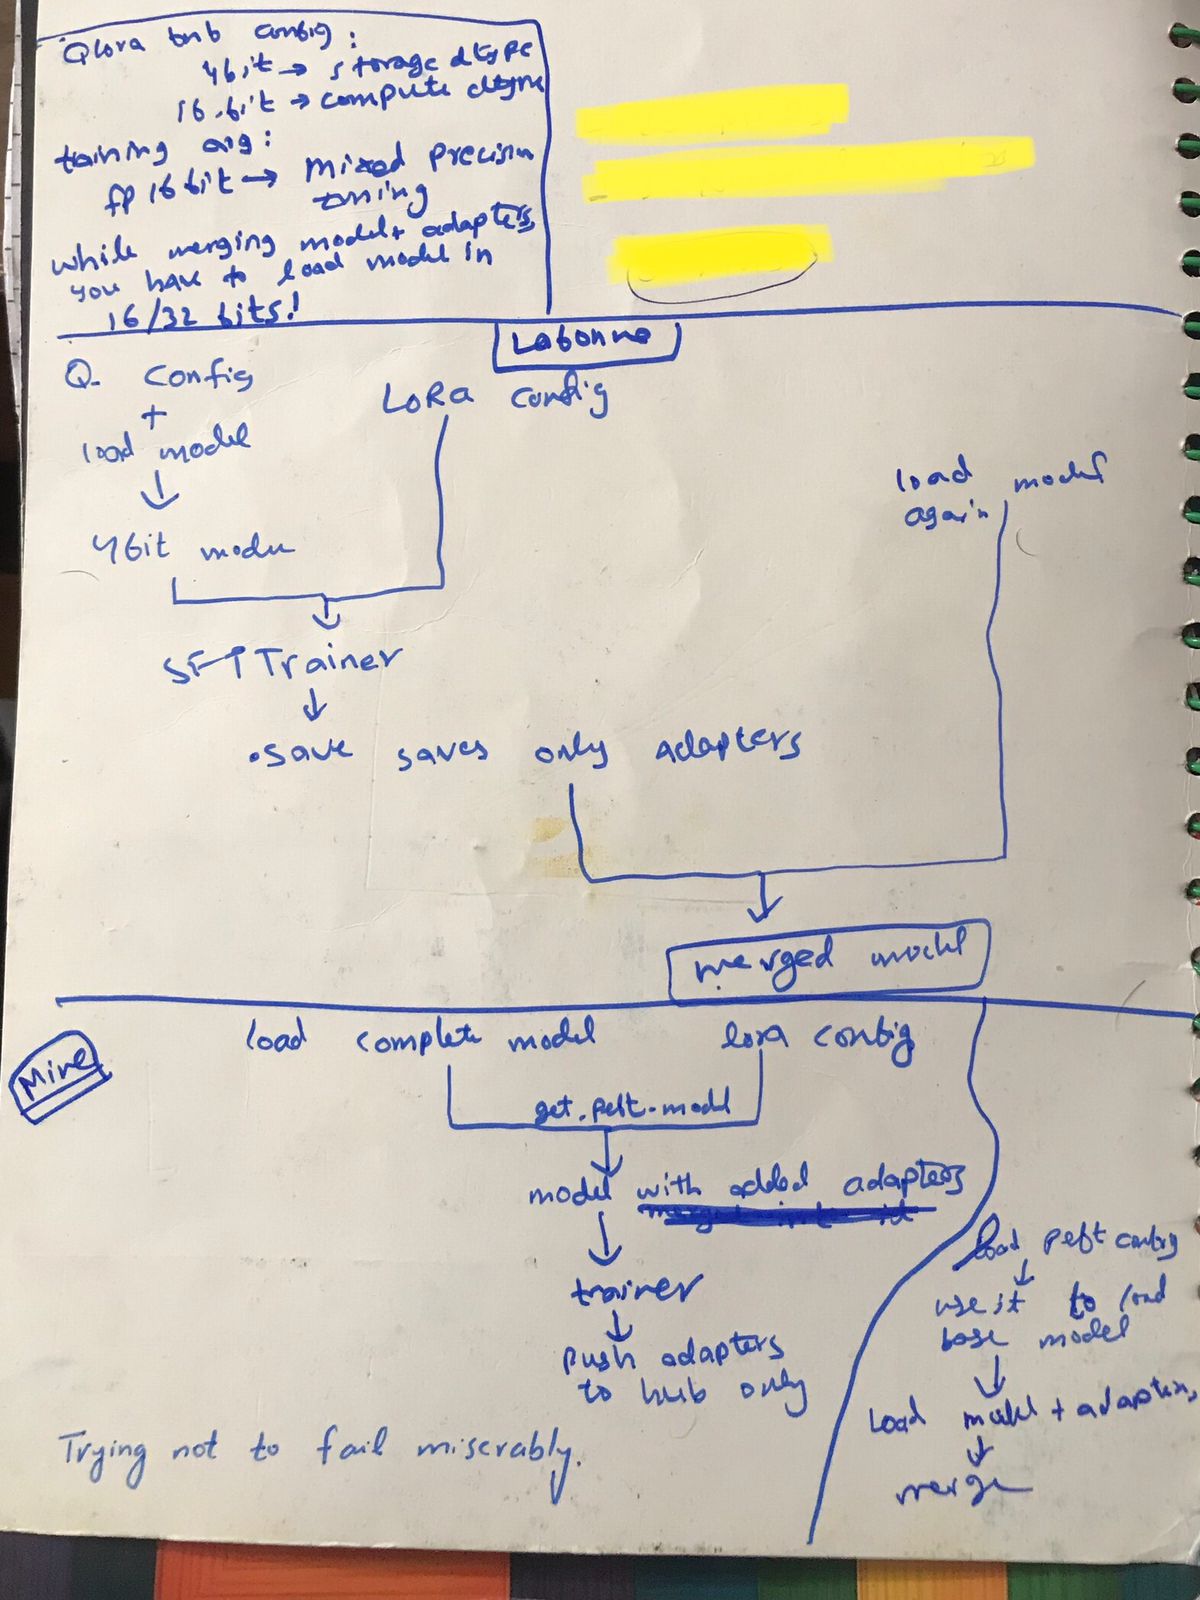 Qlora bnb config:
4bit → storage dtype
16.bit → compute dtype
training arg:
fp 16 bit → Mixed precision
while merging model + adapters,
you have to load model in
16/32 bits!
Labonne
Q. Config
+
load model
↓
4bit model
LoRa config
load model
again
↓
SFTTrainer
↓
.save saves only adapters
↓
merged model
Mine
load complete model lora config
get.peft.model
↓
model with added adapters
↓
trainer
↓
push adapters
to hub only
load peft config
↓
use it to load
base model
↓
load model + adapters,
↓
merge
Trying not to fail miserably.